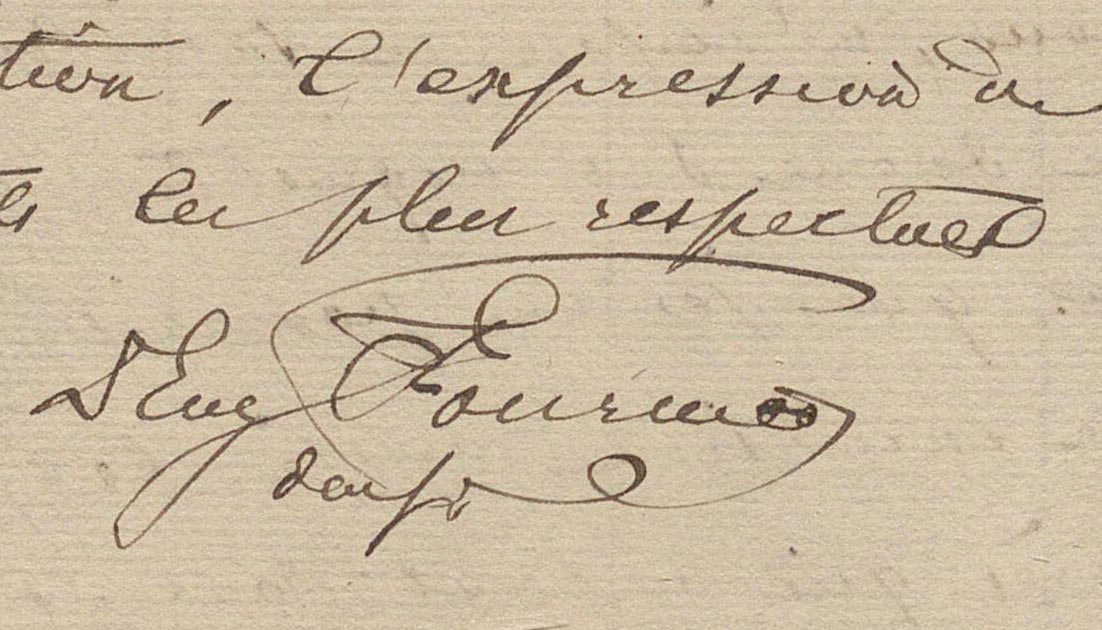 tion, l'expression de
les plus respectueu
D Eug Fournier